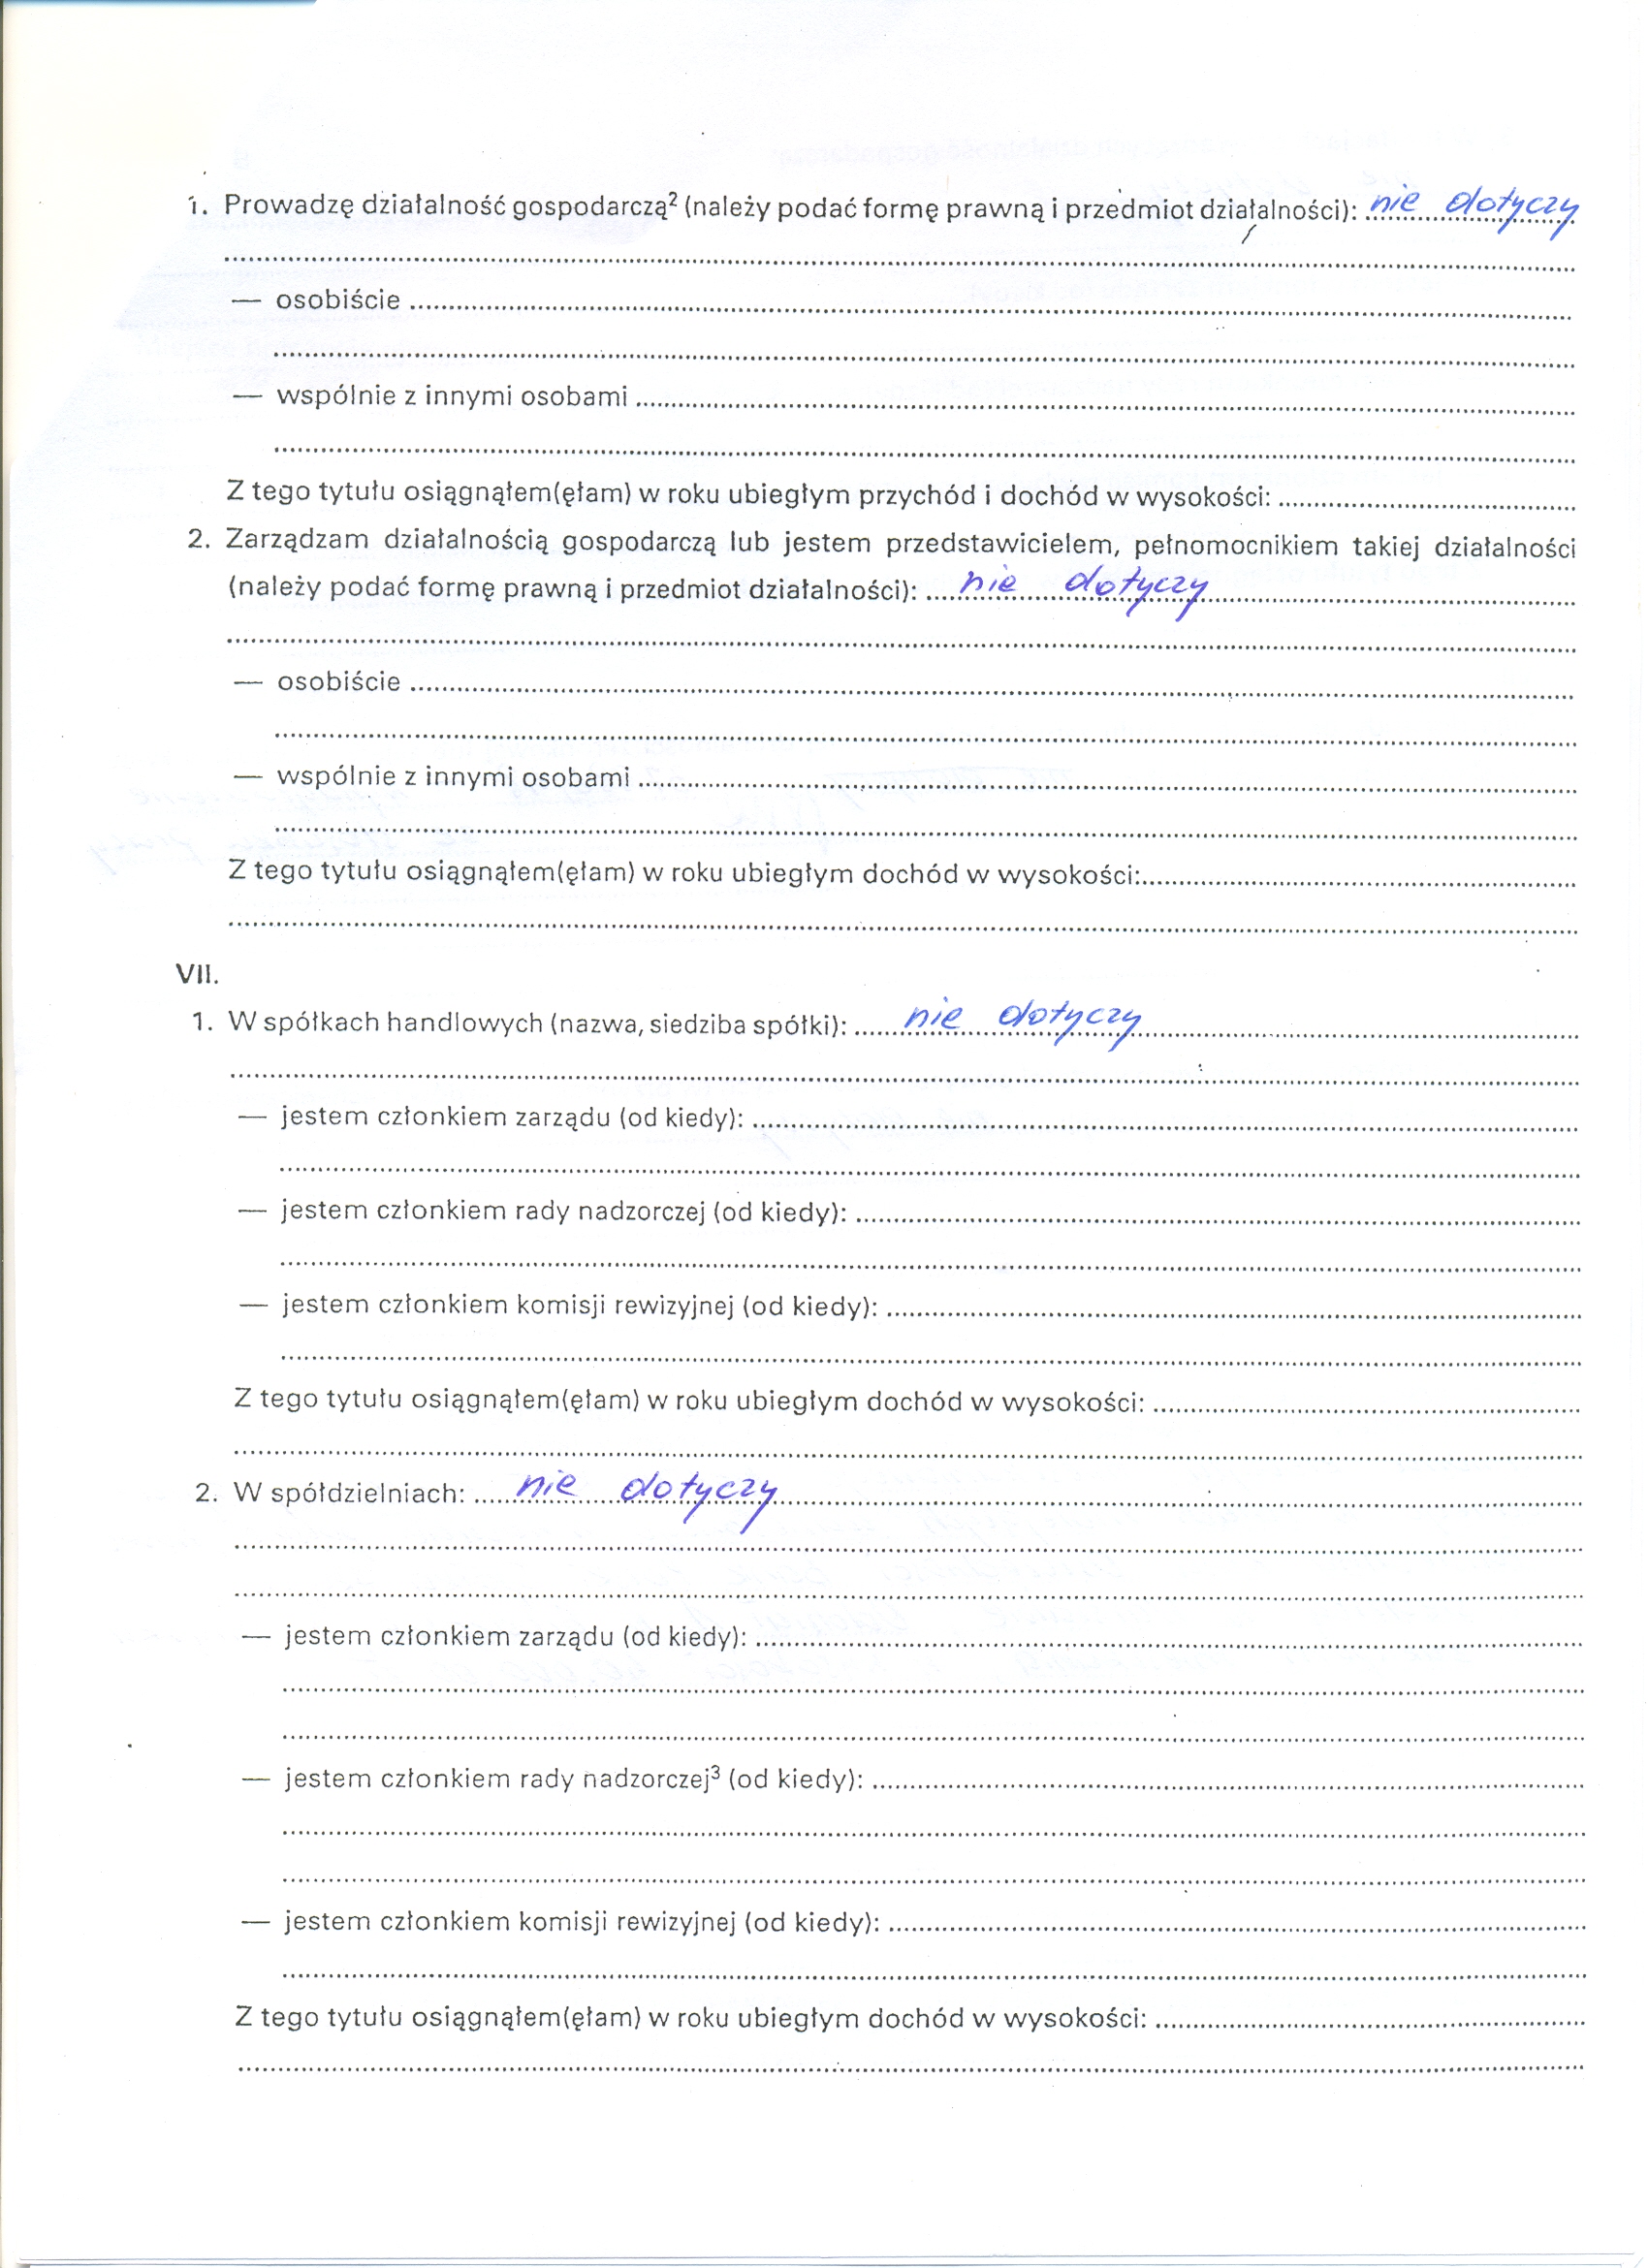 1. Prowadzę działalność gospodarczą² (należy podać formę prawną i przedmiot działalności): nie dotyczy
— osobiście
— wspólnie z innymi osobami
Z tego tytułu osiągnąłem(ęłam) w roku ubiegłym przychód i dochód w wysokości:
2. Zarządzam działalnością gospodarczą lub jestem przedstawicielem, pełnomocnikiem takiej działalności
(należy podać formę prawną i przedmiot działalności): nie dotyczy
— osobiście
— wspólnie z innymi osobami
Z tego tytułu osiągnąłem(ęłam) w roku ubiegłym dochód w wysokości:
VII.
1. W spółkach handlowych (nazwa, siedziba spółki): nie dotyczy
— jestem członkiem zarządu (od kiedy):
— jestem członkiem rady nadzorczej (od kiedy):
— jestem członkiem komisji rewizyjnej (od kiedy):
Z tego tytułu osiągnąłem(ęłam) w roku ubiegłym dochód w wysokości:
2. W spółdzielniach: nie dotyczy
— jestem członkiem zarządu (od kiedy):
— jestem członkiem rady nadzorczej³ (od kiedy):
— jestem członkiem komisji rewizyjnej (od kiedy):
Z tego tytułu osiągnąłem(ęłam) w roku ubiegłym dochód w wysokości: